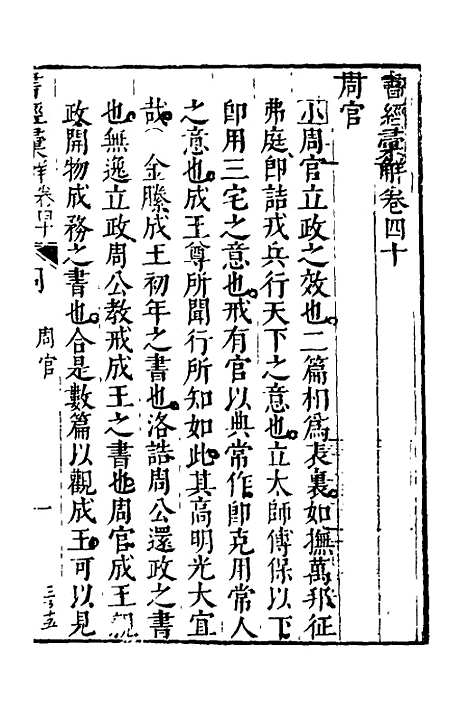 書經彙解卷四十
周官
小周官立政之效也二篇相爲表裏如撫萬邦征
弗庭卽詰戎兵行天下之意也立太師傅保以下
卽用三宅之意也戒有官以典常作卽克用常人
之意也成王尊所聞行所知如此其高明光大宜
哉金縢成王初年之書也洛誥周公還政之書
也無逸立政周公教戒成王之書也周官成王親
政開物成務之書也合是數篇以觀成王可以見
書經彙解卷四十 周官 一